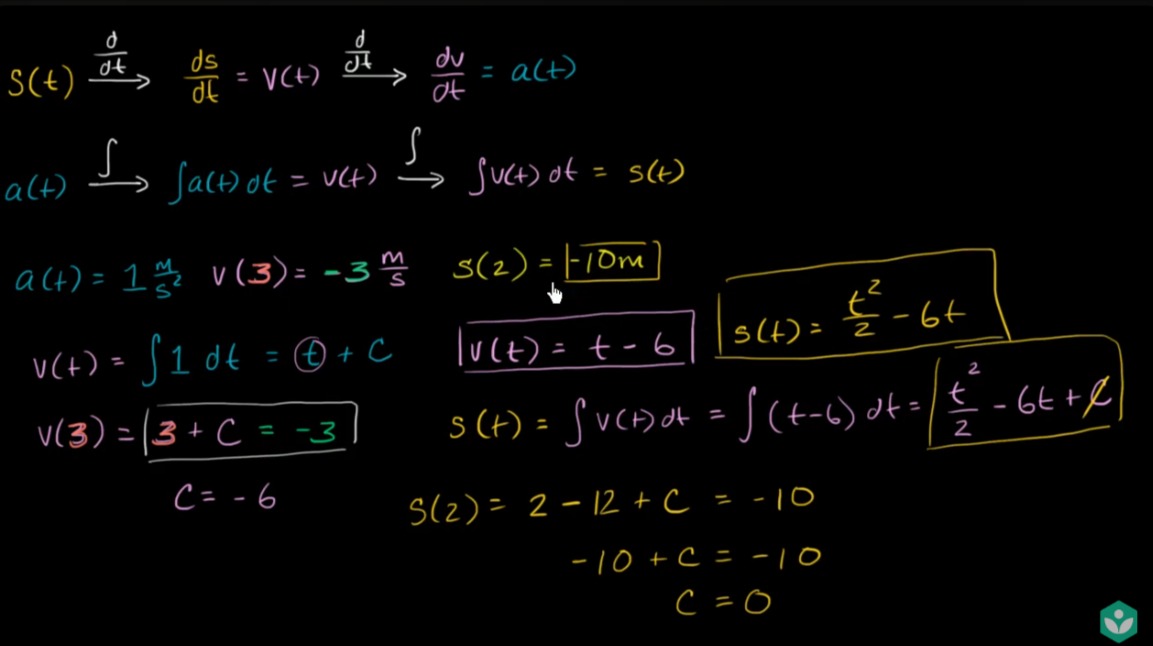 s(t) d/dt → ds/dt = v(t) d/dt → dv/dt = a(t)
a(t) ∫ → ∫a(t) dt = v(t) ∫ → ∫v(t) dt = s(t)
a(t) = 1 m/s² v(3) = -3 m/s s(2) = -10m
v(t) = ∫ 1 dt = t + C
v(3) = 3 + C = -3
C = -6
v(t) = t - 6
s(t) = t²/2 - 6t
s(t) = ∫ v(t) dt = ∫ (t-6) dt = t²/2 - 6t + C
s(2) = 2 - 12 + C = -10
-10 + C = -10
C = 0